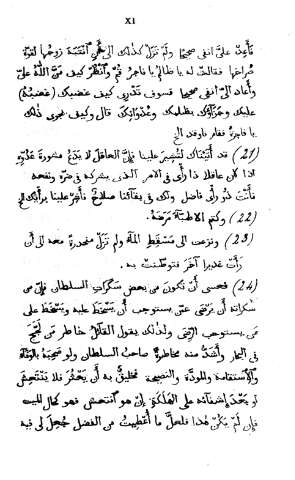 XI
فأعِدْ عليَّ انفي صحيحًا ولم تزل كذلك الى الفجر انتبه زوجها لقوة
صراخها فقالت له يا ظالم يا فاجر قم وانظر كيف مَنَّ اللهُ عليَّ
وأعاد اليَّ انفي صحيحًا فسوف تدري كيف غضبك (غضبهُ)
عليك وجزاؤك بظلمك وعدوانك قال وكيف يجري ذلك
يا فاجرة فقام فاوقد الخ
(21) قد أتيناك لتشير علينا فإنَّ العاقل لا يدع مشورة عدوّه
اذا كان عاقلًا ذا رأي في الامر الذي يشركه في ضرّه ونفعه
فأنت ذو رأي فاضل ولك في بقائنا صلاحٌ فأشِرْ علينا برأيك الخ
(22) وكتم الاطبّة مرضه
(23) ونزعت الى مسقط الماء ولم تزل منحدرة معه الى أن
رأت غديرا آخر فتوطنت به
(24) فحسى أن تكون من بعض سكرات السلطان فإنّ من
سكراته أن يرضى عمن يستوجب أن يسخط عليه ويسخط على
من يستوجب الرضى ولذلك يقول القائل خاطر من لجج
في البحار وأشدّ منه مخاطرة صاحب السلطان ولو صحبه بالوفاء
والاستقامة والمودّة والنصيحة فخليق به أن يعثر فلا ينتعش
لو يعد إشفائه على الهلكة إن هو انتعش فهو كمال الميت
فإن لم يكن هذا فلعلّ ما أعطيت من الفضل جعل لي فيه